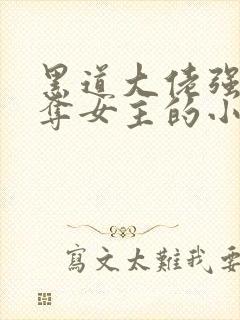 黑道大佬强
奪女主的小
寫文太難我要